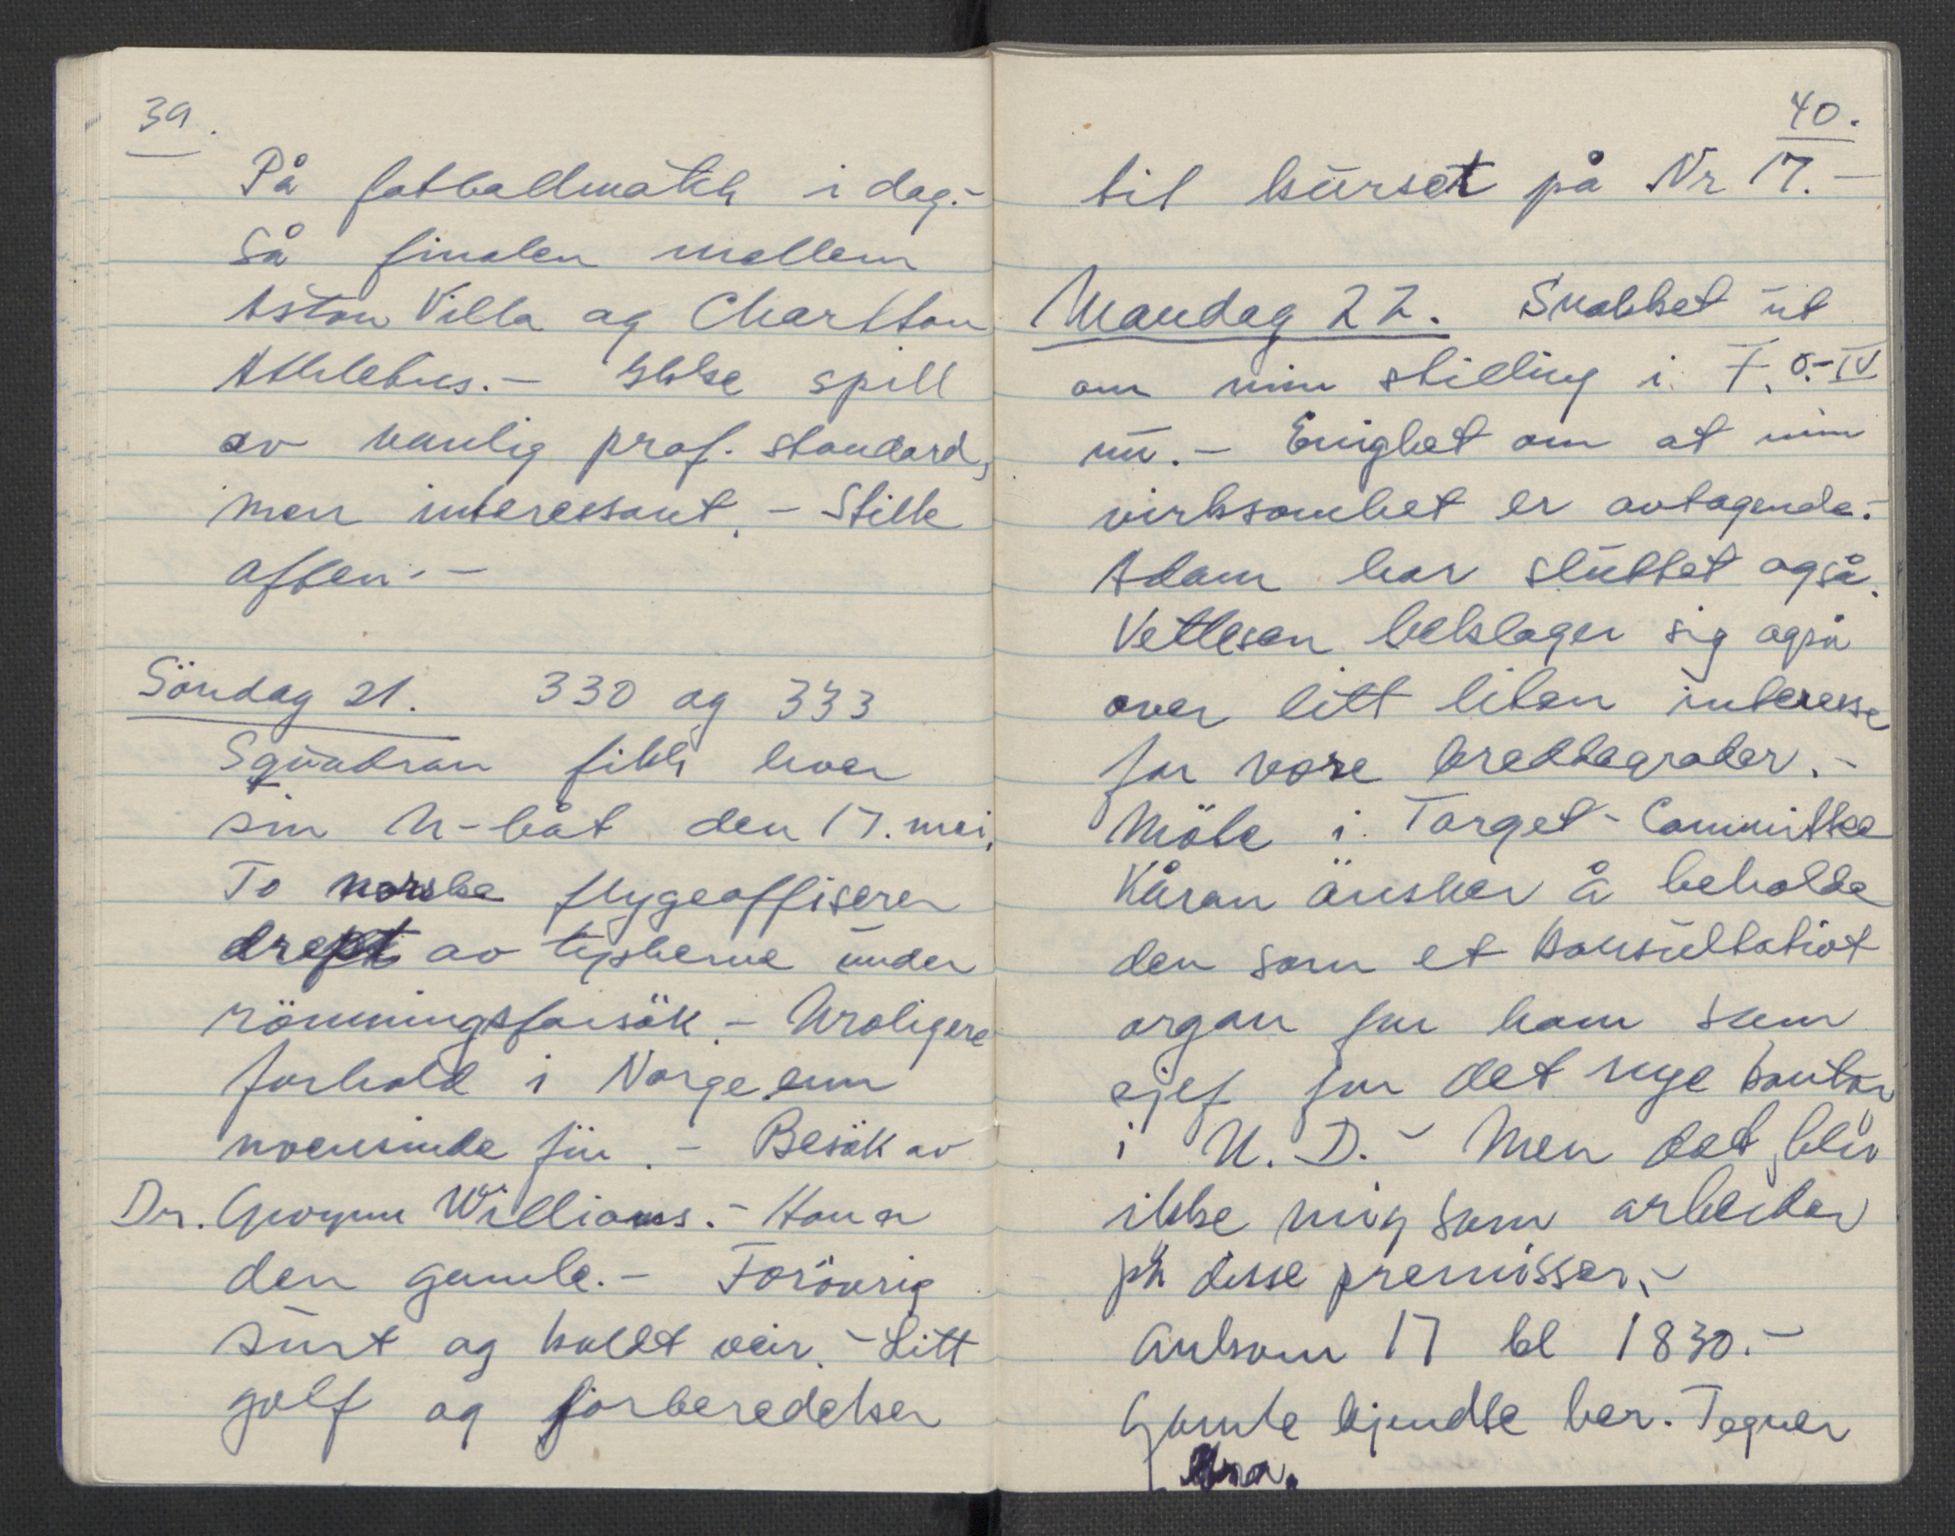 39.
På fotballmatch i dag.-
Så finalen mellem
Aston Villa og Charlton
Athletics.- Ikke spill
av vanlig prof. standard,
men interessant.- Stille
aften.-
Söndag 21. 330 og 333
Squadron fikk hver
sin U-båt den 17. mai,
To norske flygeoffiserer
drept av tyskerne under
römningsforsök.- Uroligere
forhold i Norge enn
noensinde för.- Besök av
Dr. Gwynn Williams.- Han er
den gamle.- Forövrig
surt og koldt veir.- Litt
golf og forberedelser
40.
til kurset på Nr 17.-
Mandag 22. Snakket ut
om min stilling i F.O.-IV
nu.- Enighet om at min
virksomhet er avtagende.-
Adam har sluttet også.
Vettesen beklager sig også
over litt liten interesse
for våre bredtegrader.-
Möte i Target-Committee
Kåran önsker å beholde
den som et konsultativt
organ for ham som
sjef for det nye kontor
i U.D.- Men det blir
ikke mig som arbeider
på disse premisser.-
Ankom 17 kl 1830.-
Gamle kjendte her. Tegner